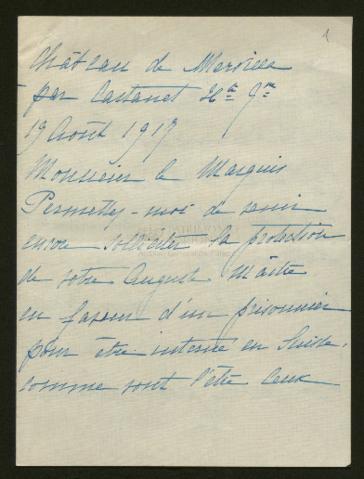 1
Château de Merville
par Castanet Hte Gne
19 Août 1917
Monsieur le Marquis
Permettez-moi de venir
encore solliciter la protection
de votre Auguste Maître
en faveur d'un prisonnier
pour être interné en Suisse,
comme vont l'être ceux